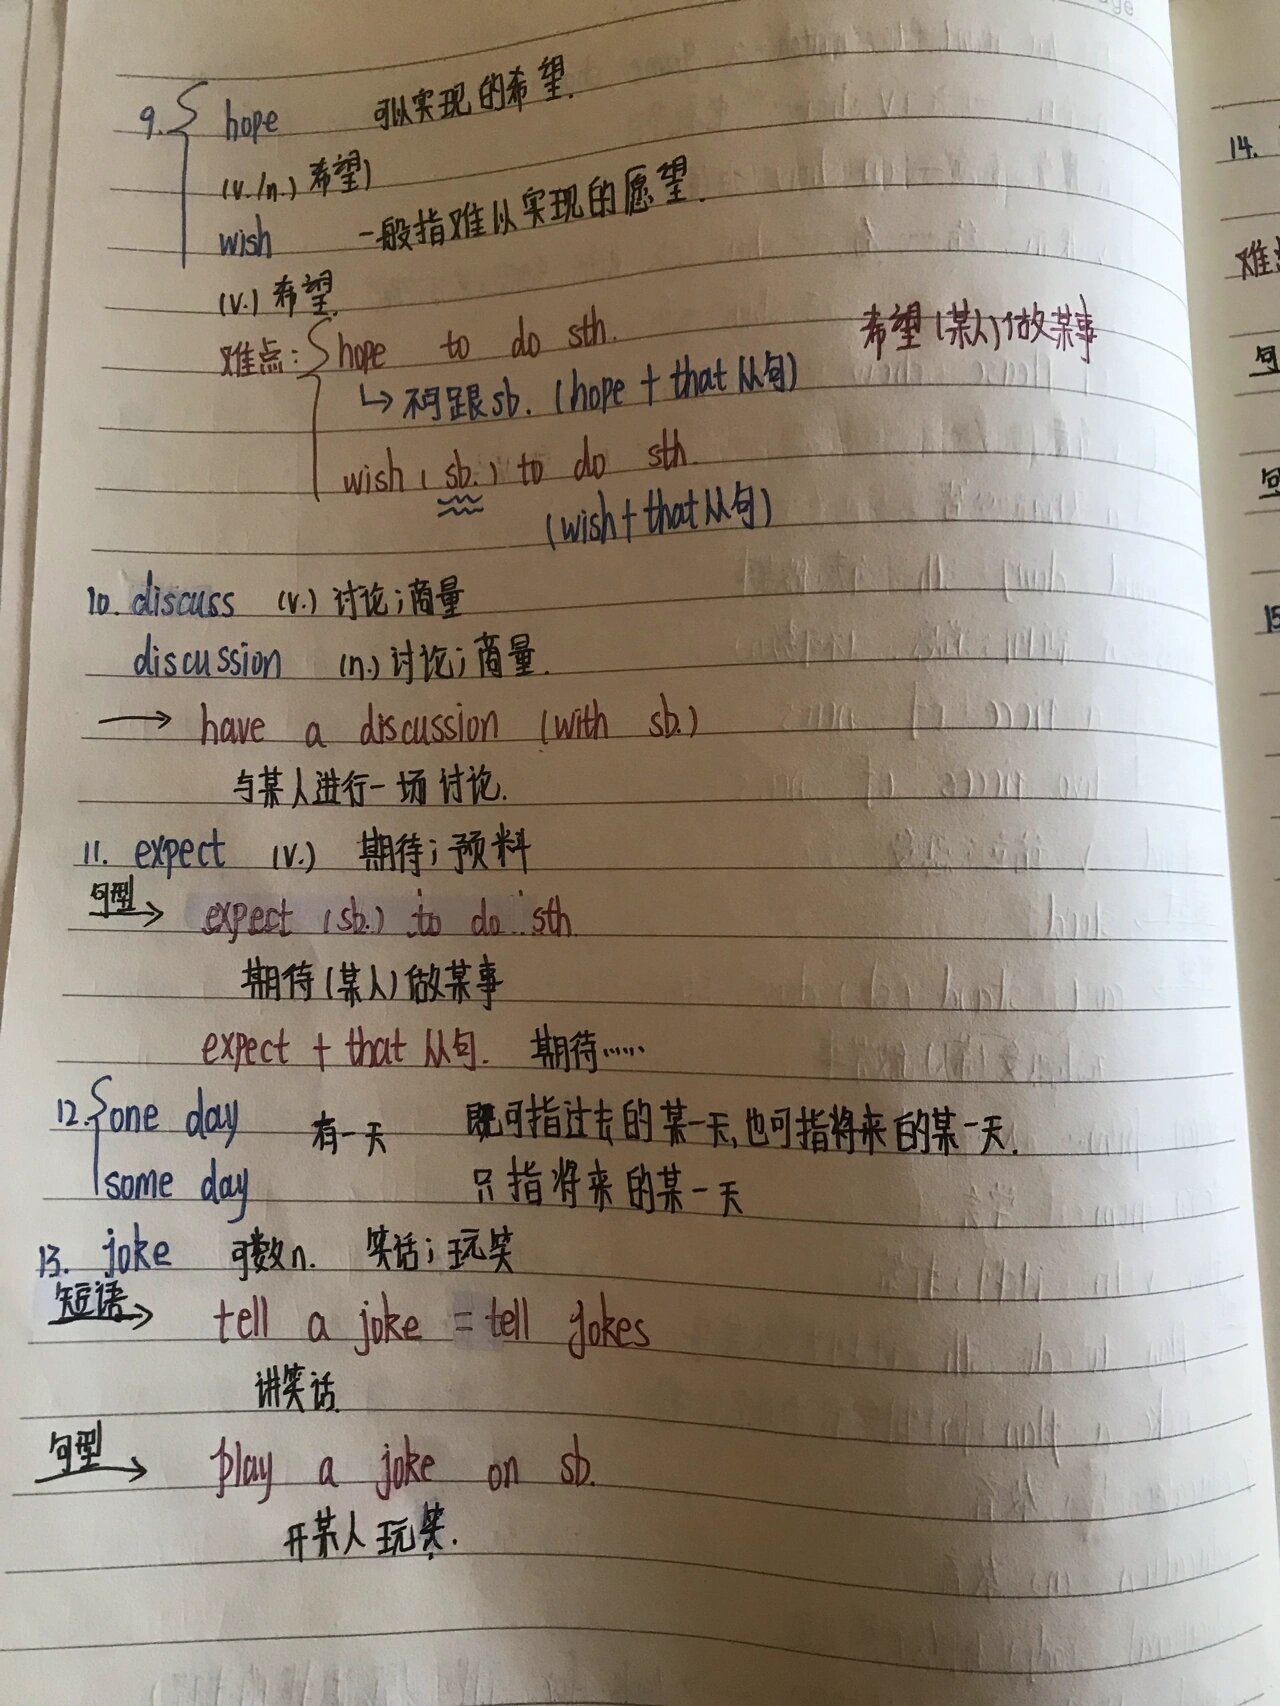 9. hope 可以实现的希望.
(v./n.) 希望)
wish 一般指难以实现的愿望.
(v.) 希望.
难点: hope to do sth. 希望(某人)做某事
↳ 不可跟sb. (hope + that从句)
wish (sb.) to do sth.
(wish + that从句)
10. discuss (v.) 讨论;商量
discussion (n.) 讨论;商量.
→ have a discussion (with sb.)
与某人进行一场讨论.
11. expect (v.) 期待;预料
句型→ expect (sb.) to do sth.
期待(某人)做某事
expect + that从句. 期待……
12. one day 有一天 既可指过去的某一天,也可指将来的某一天.
some day 只指将来的某一天
13. joke 可数n. 笑话;玩笑
短语→ tell a joke = tell jokes
讲笑话.
句型→ play a joke on sb.
开某人玩笑.
14.
难
句
句
15